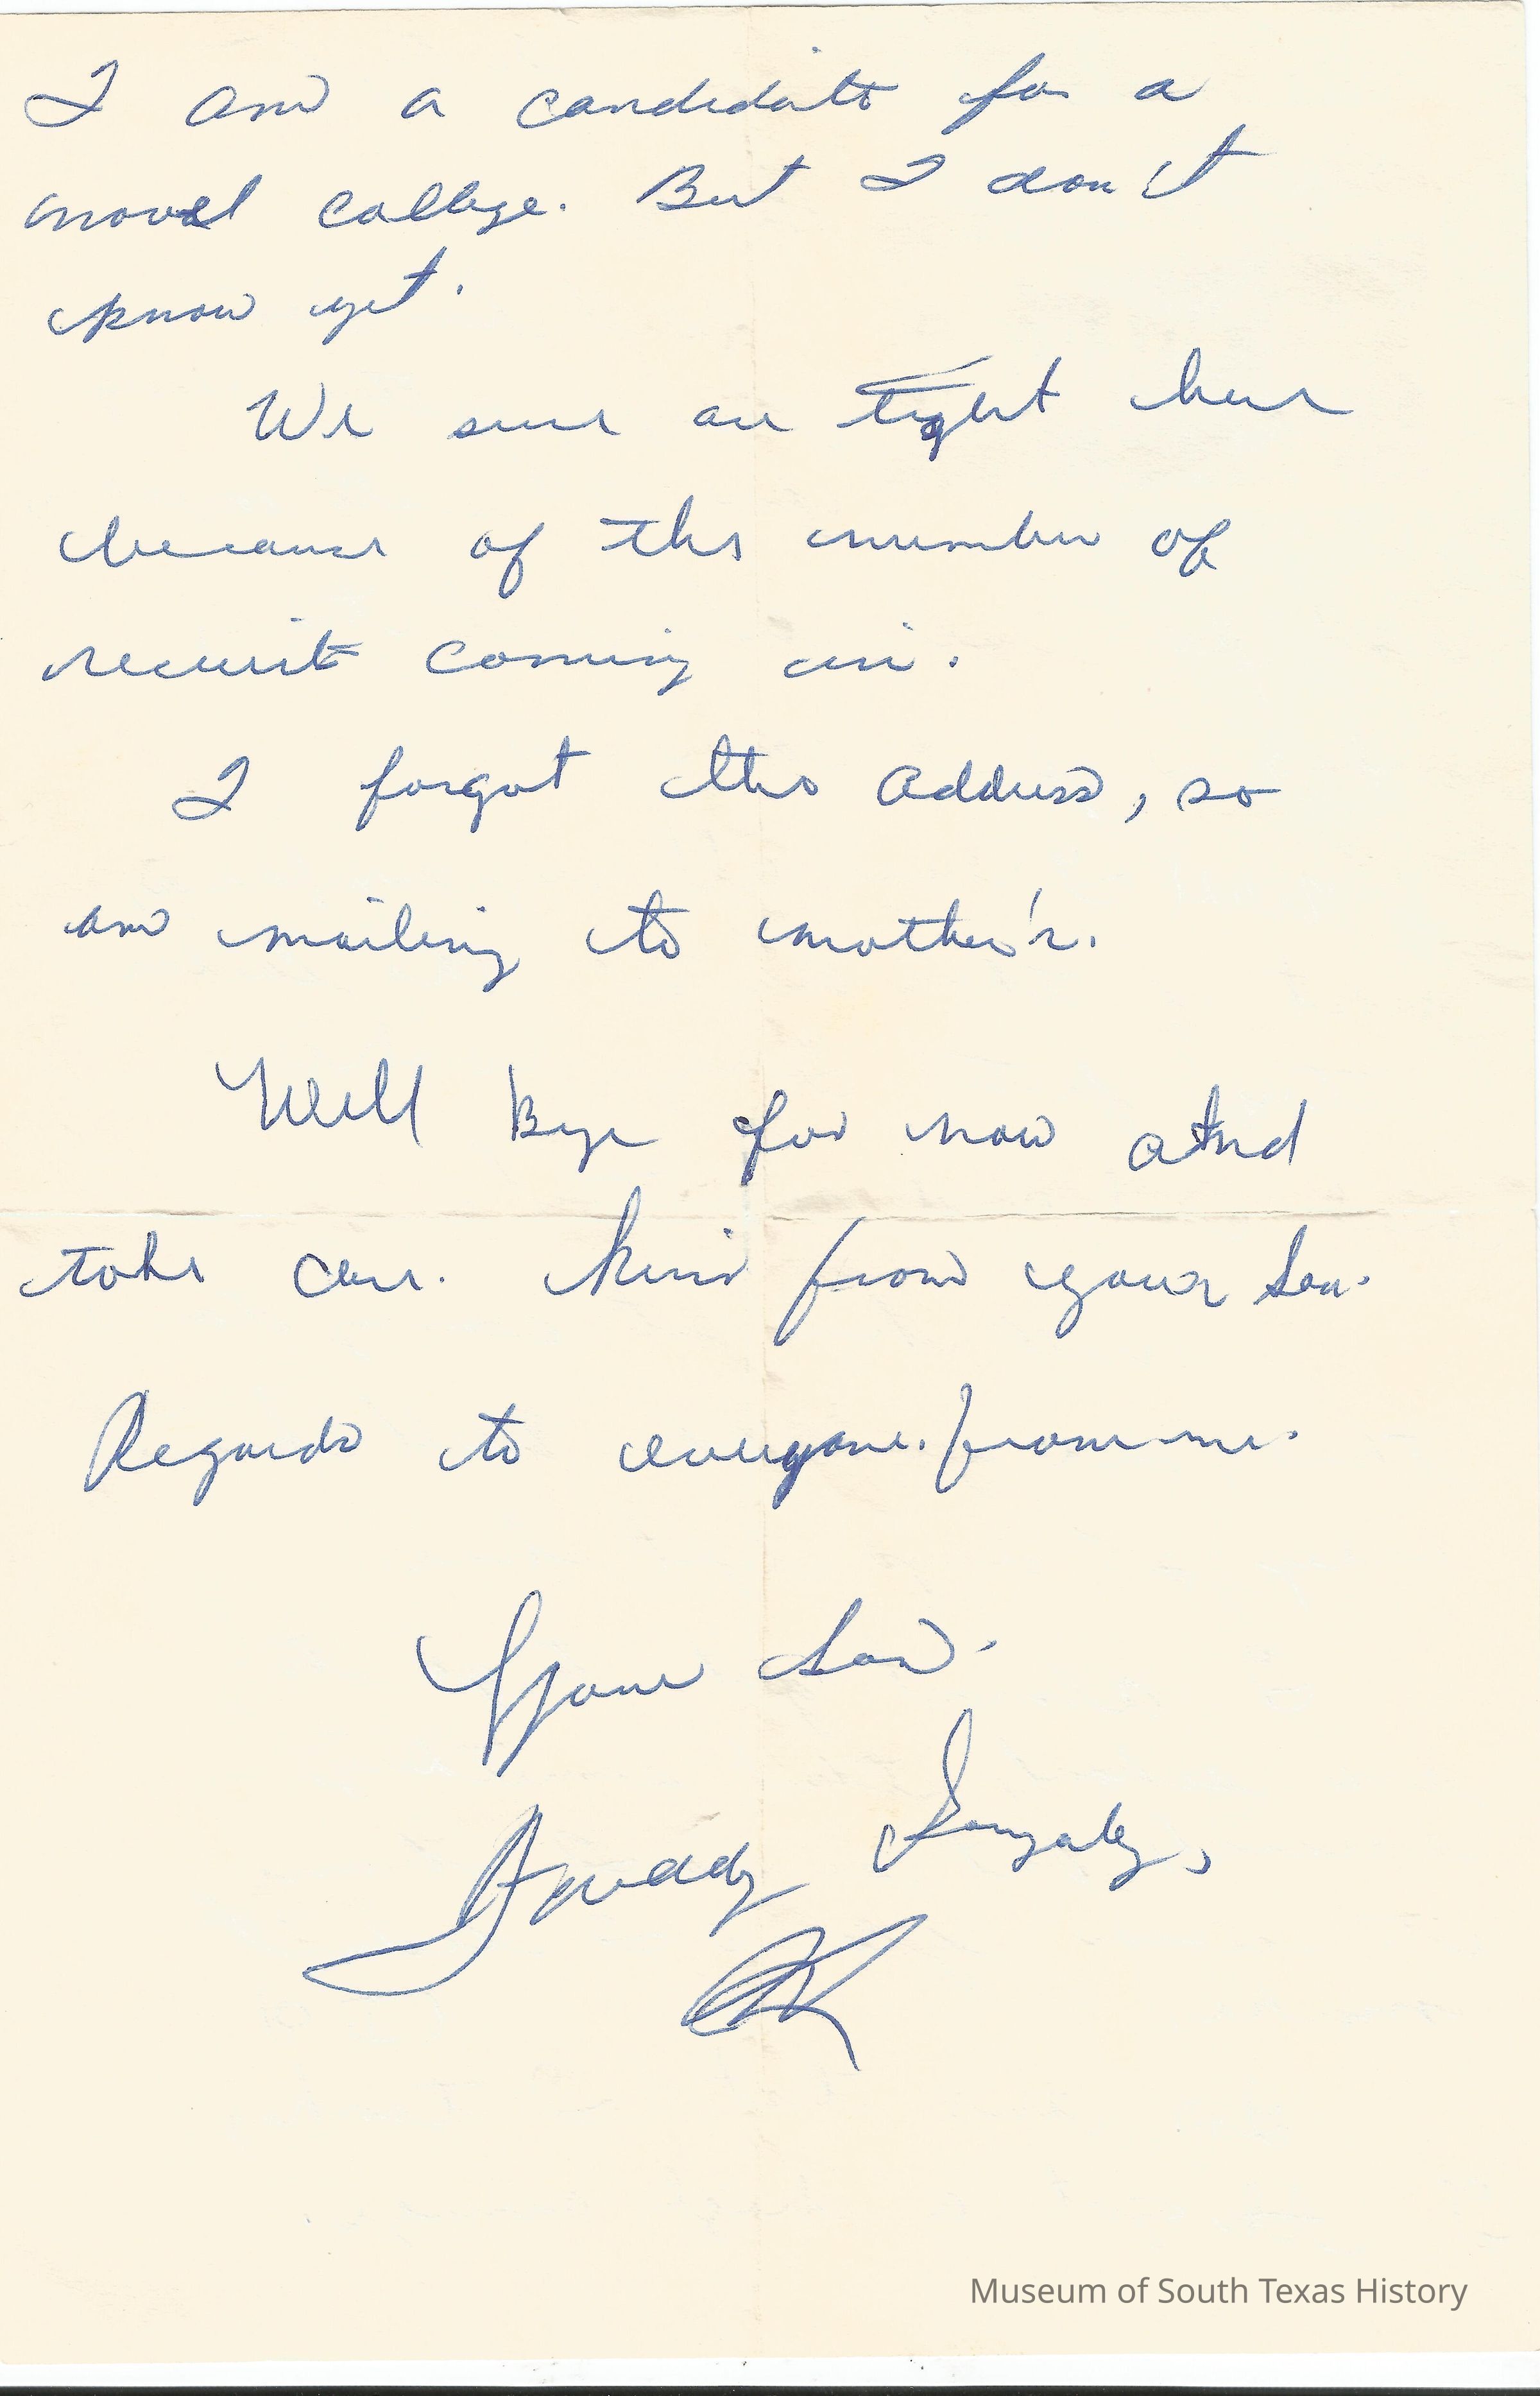 I am a candidate for a
naval college. But I don't
know yet.
We sure are tight here
because of the number of
recruit coming in.
I forgot the address, so
am mailing to mother's.
Well Bye for now and
take care. from your son.
Regards to everyone. from me.
Your Son.
Freddy Gonzalez,
Museum of South Texas History